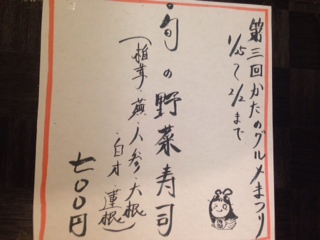 第三回かたのグルメまつり
1/25〜2/2まで
旬の野菜寿司
(椎茸・蕪・人参・大根
・白才・蓮根)
七〇〇円